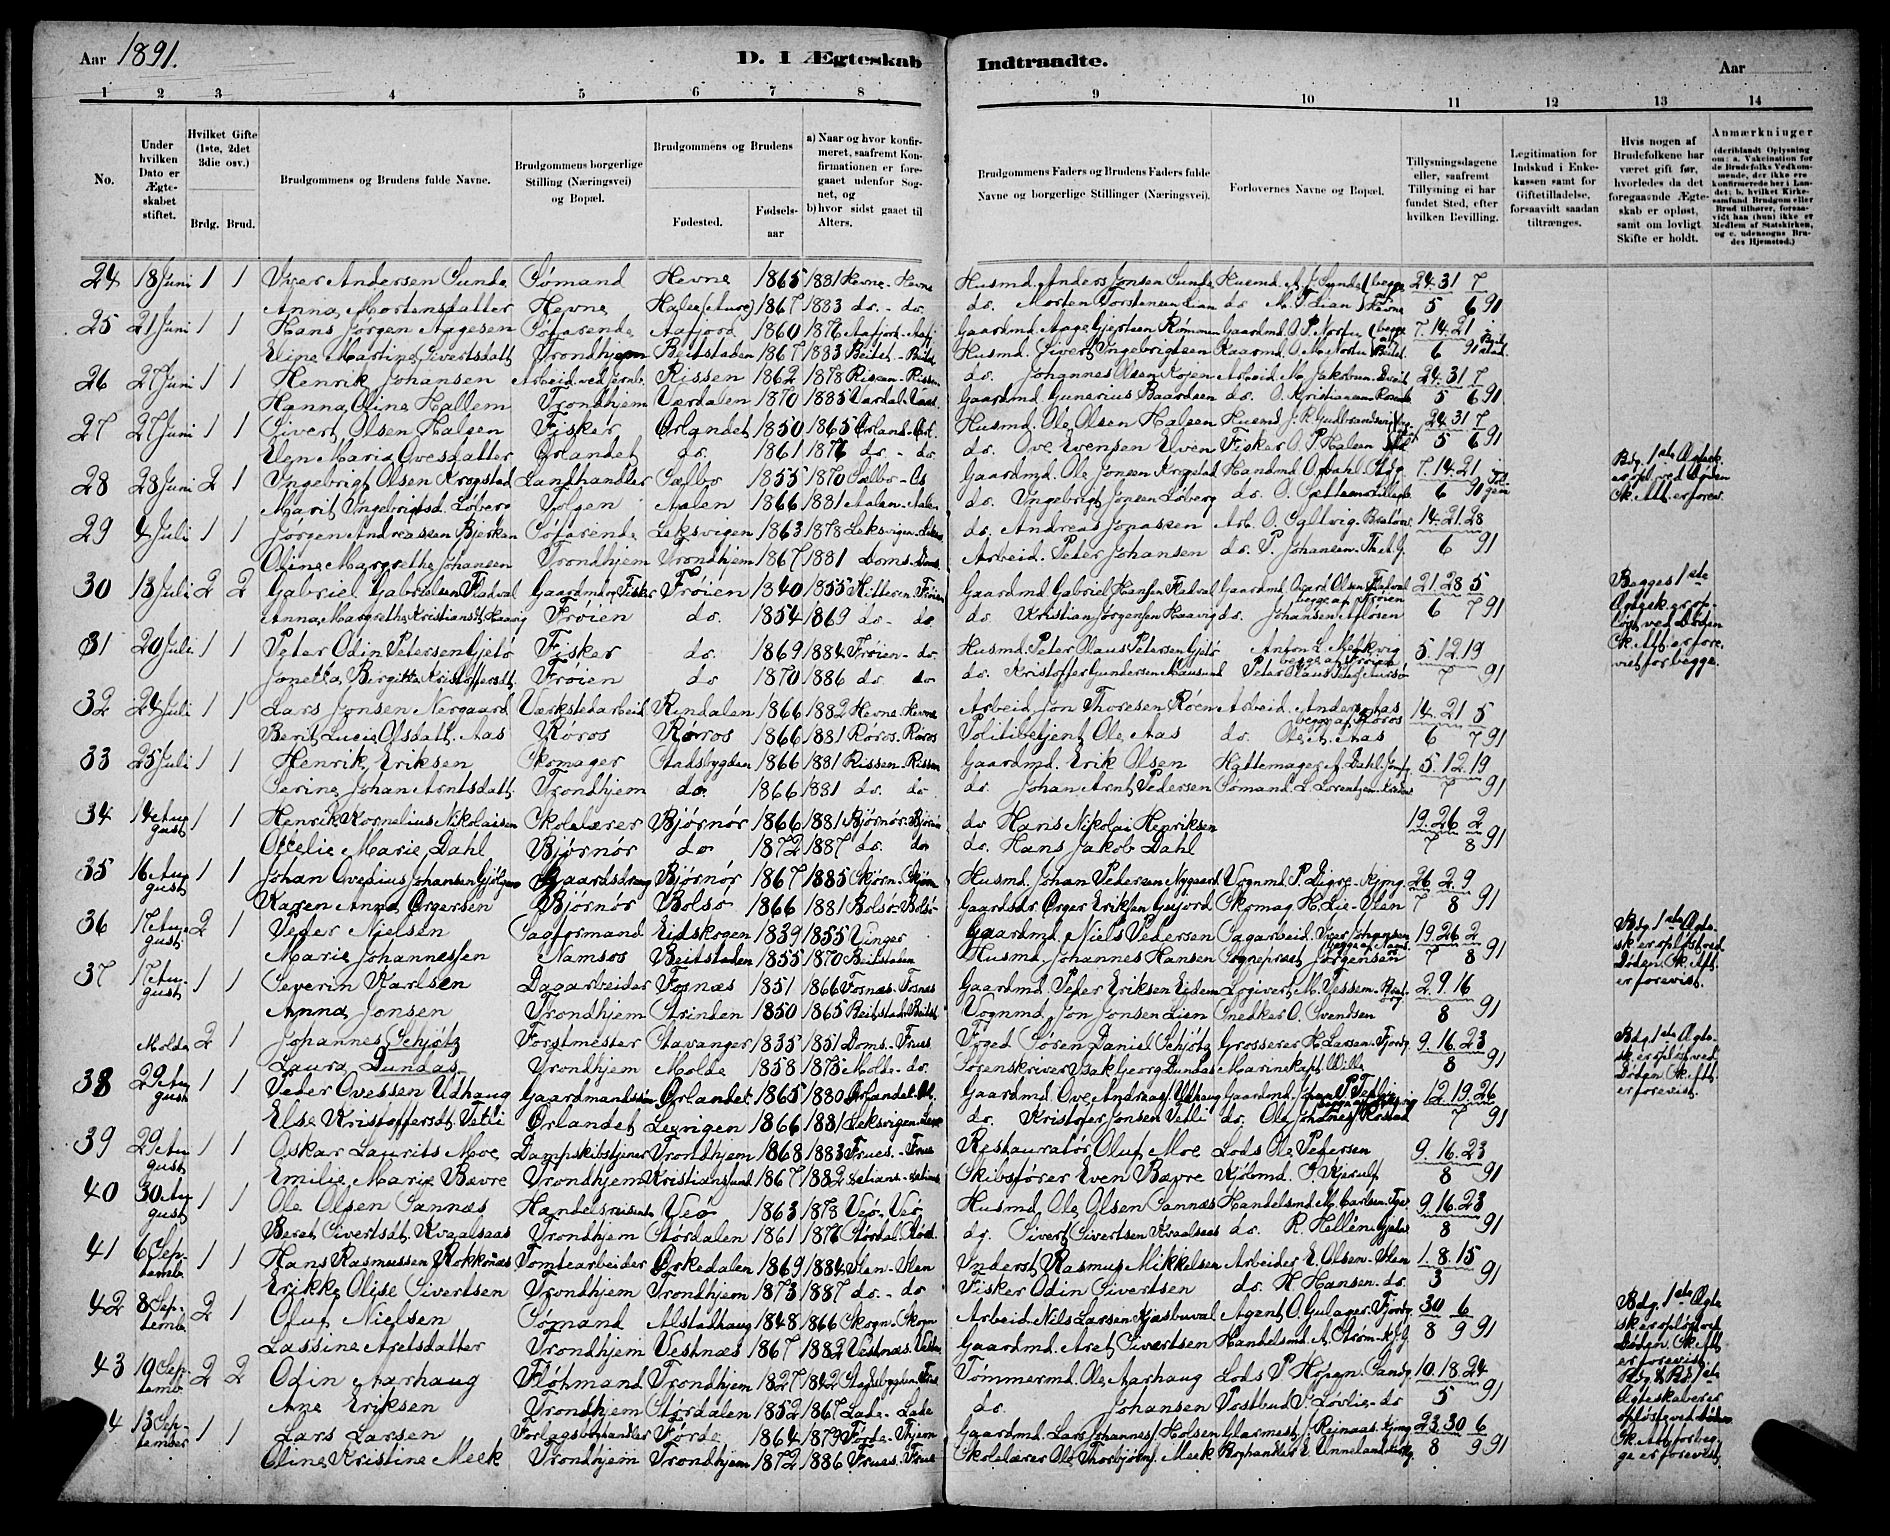 Aar 1891. D. I Ægteskab Indtraadte. Aar
1 2 3 4 5 6 7 8 9 10 11 12 13 14
No.
Under hvilken Dato er Ægteskabet stiftet.
Hvilket Gifte (1ste, 2det 3die osv.)
Brdg. Brud.
Brudgommens og Brudens fulde Navne.
Brudgommens borgerlige Stilling (Næringsvei) og Bopæl.
Brudgommens og Brudens
Fødested. Fødselsaar
a) Naar og hvor konfirmeret, saafremt Konfirmationen er foregaaet udenfor Sognet, og b) hvor sidst gaaet til Alters.
Brudgommens Faders og Brudens Faders fulde Navne og borgerlige Stillinger (Næringsvei).
Forlovernes Navne og Bopæl.
Tillysningsdagene eller, saafremt Tillysning ei har fundet Sted, efter hvilken Bevilling.
Legitimation for Indskud i Enkekassen samt for Giftetilladelse, forsaavidt saadan tiltrænges.
Hvis nogen af Brudefolkene har været gift før, hvorledes da det foregaaende Ægteskab er opløst, samt om lovligt Skifte er holdt.
Anmærkninger (deriblandt Oplysning om: a. Vakcination for de Brudefolks Vedkommende, der ikke ere konfirmerede her i Landet; b. hvilket Kirkesamfund Brudgom eller Brud tilhører, forsaavidt han (hun) ikke er Medlem af Statskirken, og c. udensogns Brudes Hjemsted.)
24 18 Juni 1 1 Iver Andersen Sunde Sømand Hevne 1865 1881 Hevne - Hevne Husmd. Anders Jonsen Sunde Husmd. A. J. Sunde begge 24. 31 7
Anna Mortensdatter Hevne Halse (Aure) 1867 1883 do. - do. do. Morten Torstensen Lian do. M. T. Lian Hevne 5 6 91
25 21 Juni 1 1 Hans Jørgen Aagesen Søfarende Aafjord 1860 1876 Aafjord - Aafj. Gaardmd. Aage Gjertsen Rømmen Gaardmd. O. P. begge 7. 14. 21
Eline Martine Sivertsdatt. Trondhjem Beitstaden 1867 1883 Beitst. - Beitst. Husmd. Sivert Ingebrigtsen Gaardmd. O. 6 91
26 27 Juni 1 1 Henrik Johansen Arbeid. ved Jernb. Rissen 1862 1878 Rissen - Rissen do. Johannes Olsen Arbeid. 24. 31 7
Hanna Oline Hallem Trondhjem Værdalen 1870 1885 Værdal - Gaardmd. Gunerius Baardsen do. O. Kristiansen 5 6 91
27 27 Juni 1 1 Sivert Olsen Halsen Fisker Ørlandet 1850 1865 Ørland - Ørl. Husmd. Ole Olsen Halsen Husmd. J. R. 24. 31 7
Elen Maria Ovesdatter Ørlandet do. 1861 1876 do. - do. do. Ove Evensen Elven Fisker O. P. Halsen 5 6 91
28 28 Juni 2 1 Ingebrigt Olsen Krogstad Landhandler Sælbo 1855 1870 Sælbo - Gaardmd. Ole Jonsen Krogstad Handmd. O. Dahl 7. 14. 21 Bdg. 1ste Ægtesk.
Marit Ingebrigtsd. Løberg Tolgen Aalen 1866 1881 Aalen - Aalen do. Ingebrigt Jonsen Løberg do. O. 6 91 er opl. ved Døden
Sk. Att. er forev.
29 4 Juli 1 1 Jørgen Andreassen Bjerkan Søfarende Leksvigen 1863 1878 Leksvigen - do. Andreas Jonassen Arb. O. 14. 21 28
Oline Margrethe Johansen Trondhjem Trondhjem 1867 1881 Doms - Doms. Arbeid. Peter Johansen do. P. Johansen 6 91
30 13 Juli 2 2 Gabriel Gabrielsen Fladval Gaardmd. og Fisker Frøien 1840 1855 Hitteren - Frøien Gaardmd. Gabriel Hansen Fladval Gaardmd. Olsen Fladval 21. 28 5 Begges 1ste
Anna Margrethe Kristiansdt. Haavig Frøien do. 1854 1869 do - do. do. Kristian Jørgensen Haavig do. Johansen begge af Frøien 6 7 91 Ægtesk. er opløst ved Døden
Sk. Att. er forevist for begge.
31 20 Juli 1 1 Peter Odin Petersen Gjetø Fisker do. 1869 1884 Frøien - do. Husmd. Peter Olaus Petersen Gjetø Anton L. 5. 12 19
Jonetta Bergitte Kristoffersdt. Frøien do 1870 1886 do. do do. Kristoffer Gundersen Mausund Peter Olaus begge af Frøien 7 91
32 24 Juli 1 1 Lars Jonsen Nergaard Værkstedarbeid. Rindalen 1866 1882 Hevne - Hevne Arbeid. Jon Thoresen Røen Arbeid. Anders Aas 14. 21 5
Berit Lucie Olsdatt. Aas Røros Røros 1866 1881 Røros - Røros Politibetjent Ole Aas do. Ole A. Aas begge af Røros 6 7 91
33 25 Juli 1 1 Henrik Eriksen Skomager Stadsbygden 1866 1881 Rissen - Rissen Gaardmd. Erik Olsen Hattemager A. Dahl 5. 12. 19
Serine Johan Arntsdatt. Trondhjem do. 1866 1881 do. do do. Johan Arnt Pedersen Sømand L. Lorentzen 7 91
34 14 August 1 1 Henrik Kornelius Nikolaisen Skolelærer Bjørnør 1866 1881 Bjørnør - Bjørnør do. Hans Nikolai Henriksen 19. 26 2
Ottelie Marie Dahl Bjørnør do 1872 1887 do. do do. Hans Jakob Dahl 7 8 91
35 16 August 1 1 Johan Ovesius Johansen Gaardsdreng Bjørnør 1867 1885 Skjørn - Skjørn Husmd. Johan Pedersen Nygaard Vognmd. P. Digre - Kjøng. 26 2 9
Karen Anna Ørgersen Bjørnør Bolsø 1866 1881 Bolsø - Bolsø Gaardsdr. Ørger Eriksen Geijord Skomag. H. Lie - Ilen 7 8 91
36 17 August 2 1 Peder Nielsen Sagformand Eidskogen 1839 1855 Vinger Gaardmd. Niels Pedersen Sagarbeid. Iver Johansen 19. 26 2 Bdg. 1ste Ægteskab er opløst ved
Marie Johannessen Namsos Beitstaden 1855 1870 Beitstaden Husmd. Johannes Hansen Sogneprest Jørgensen begge af Nams. 7 8 91 Døden. Sk. Att. er forevist.
37 17 August 1 1 Severin Karlsen Dagarbeider Fosnæs 1851 1866 Fosnæs - Fosnæs Gaardmd. Peder Eriksen Eidem Logivert M. Jessem 2. 9. 16
Anna Jonsen Trondhjem Strinden 1850 1865 Beitstad - Beitst. Vognmd. Jon Jonsen Lien Snedker O. Svendsen 8 91
Molde 2 1 Johannes Schjøtz Forstmester Stavanger 1835 1851 Doms. - Frues Foged Søren Daniel Schjøtz Grosserer H. Larsen - Fjordg. 9. 16. 23 Bdg. 1ste Ægteskab er opløst ved
Laura Dundas Trondhjem Molde 1858 1873 Molde - do. Sorenskriver Isak Georg Dundas Marinekapt. Wille 8 91 Døden Sk. Att. er forevist.
38 29 August 1 1 Peder Ovessen Udhaug Gaardmandssøn Ørlandet 1865 1880 Ørlandet - Ørl. Gaardmd. Ove Andreas Udhaug Gaardmd. 12. 19. 26
Else Kristoffersdt. Vetli Ørlandet 1866 1881 Leksvigen - do. Kristofer Jonsen Vetli do. Ole Johannes 7 91
39 29 August 1 1 Oskar Laurits Moe Dampskibstjener Trondhjem 1868 1883 Frues - Frue Restauratør Oluf Moe Lods Ole Petersen 9. 16. 23
Emilie Marie Bævre Trondhjem Kristiansund 1867 1882 Kristians - Kristians Skibsfører Even Bævre Kjøbmd. P. Kjerulf 8 91
40 30 August 1 1 Ole Olsen Sannæs Handelsreisende Veø 1863 1878 Veø - Veø Husmd. Ole Olsen Sannæs Handelsmd. M. Carlsen 9. 16. 23
Beret Sivertsdt. Kvaalsaas Trondhjem Størdalen 1861 1876 Størdal - Stod. do. Sivert Sivertsen Kvaalsaas do. R. Hellén 8 91
41 6 Septemb. 1 1 Hans Rasmussen Rokkones Tomtearbeider Ørkedalen 1869 1884 Ilen - Ilen Inderst Rasmus Mikkelsen Arbeider E. Olsen - Ilen 1. 8. 15
Erikke Olise Sivertsen Trondhjem Trondhjem 1873 1887 do. - do Fisker Odin Sivertsen do. H. Hansen - do. 3 91
42 8 Septemb. 2 1 Oluf Nielsen Sømand Alstadhaug 1848 1866 Skogn - Skogn Arbeid. Nils Larsen Kjæsbuval Agent O. Gulager - Fjordg. 30 6 Bdg. 1ste Ægteskab er opløst ved
Lassine Aretsdatter Trondhjem Vestnæs 1867 1882 Vestnæs - Gaardmd. Aret Sivertsen Handelsmd. A. Strøm 8 9 91 Døden. Sk. Att. er forevist.
43 10 Septemb. 2 2 Odin Aarhaug Fløtmand Trondhjem 1827 1842 Stadsbygden - Frue Tømmermd. Ole Aarhaug Lods P. Hopen - Sandg. 10. 18. 24 Bdg. & Bd. 1ste
Ane Eriksen Trondhjem Størdalen 1852 1867 Lade - Lade do. Johansen Postbud S. Løvlie - do 5 91 Ægteskaber er opløste ved Døden
Sk. Att. for begge er forevist.
4 13 September 1 1 Lars Larsen Forlagsboghandler Førde 1864 1879 Førde - Thjem Gaardmd. Lars Johannes Holsen Glarmest. J. Reinaas - Kjøng. 23. 30 6
Oline Kristine Meek Trondhjem Trondhjem 1872 1886 Frues - Frue Skolelærer Ole Thorbjørns. Meek Boghandler E. 8 9 91